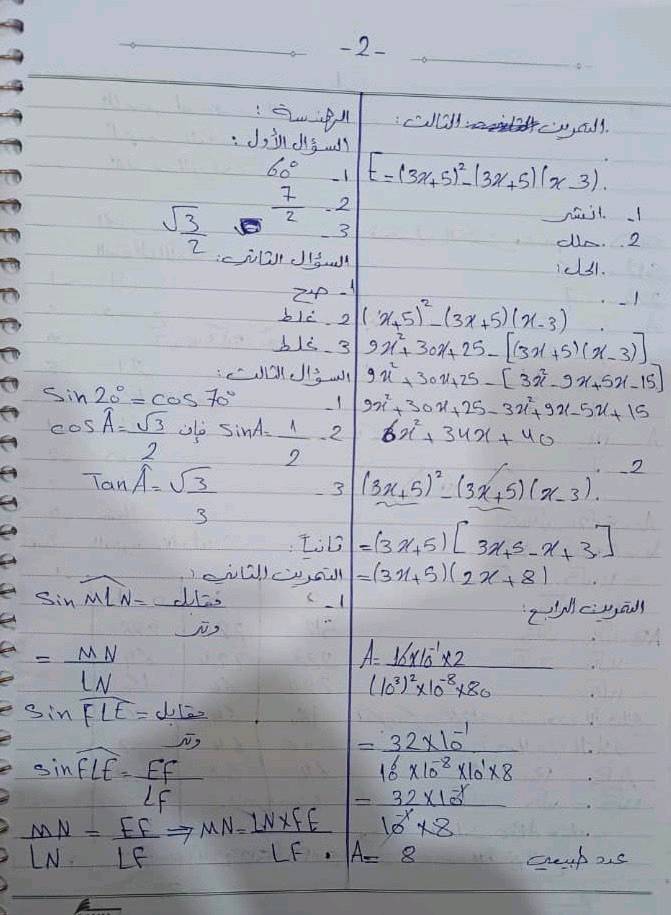 -2-
التمرين الثالث:
E = (3x+5)² - (3x+5)(x-3).
1- انشر
2. حلل
الحل:
1-
(x+5)² - (3x+5)(x-3)
9x² + 30x + 25 - [(3x+5)(x-3)]
9x² + 30x + 25 - [3x² - 9x + 5x - 15]
9x² + 30x + 25 - 3x² + 9x - 5x + 15
6x² + 34x + 40
2-
(3x+5)² - (3x+5)(x-3).
= (3x+5)[3x+5-x+3]
= (3x+5)(2x+8)
التمرين الرابع:
A = 16×10⁻¹×2
(10³)²×10⁻⁸×80
= 32×10⁻¹
10⁶×10⁻⁸×10¹×8
= 32×10⁻¹
10⁻¹×8
A = 8 عدد طبيعي
الهندسة:
السؤال الأول:
1- 60°
2- 7/2
3- √3/2
السؤال الثاني:
1- صح
2- غلط
3- غلط
السؤال الثالث:
1- sin 20° = cos 70°
2- sin A = 1/2 فإن cos Â = √3/2
3- Tan Â = √3/3
ثانياً:
التمرين الثاني:
1- Sin MLN = مقابل
وتر
= MN/LN
Sin FLE = مقابل
وتر
sin FLE = EF/LF
MN/LN = EF/LF ⇒ MN = LN×FE/LF.